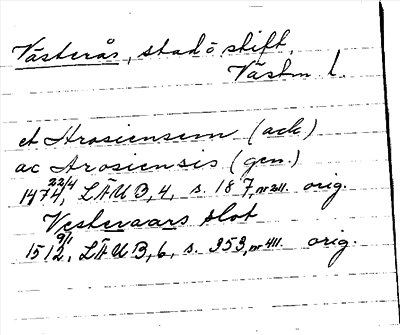 Västerås, stad o stift,
Västm l.
et Arosiensem (ack)
ac Arosiensis (gen.)
1474 22/4, LÄUB, 4, s. 187, nr 211. orig.
Vesteraars slot
1512 9/1, LÄUB, 6, s. 353, nr 411. orig.